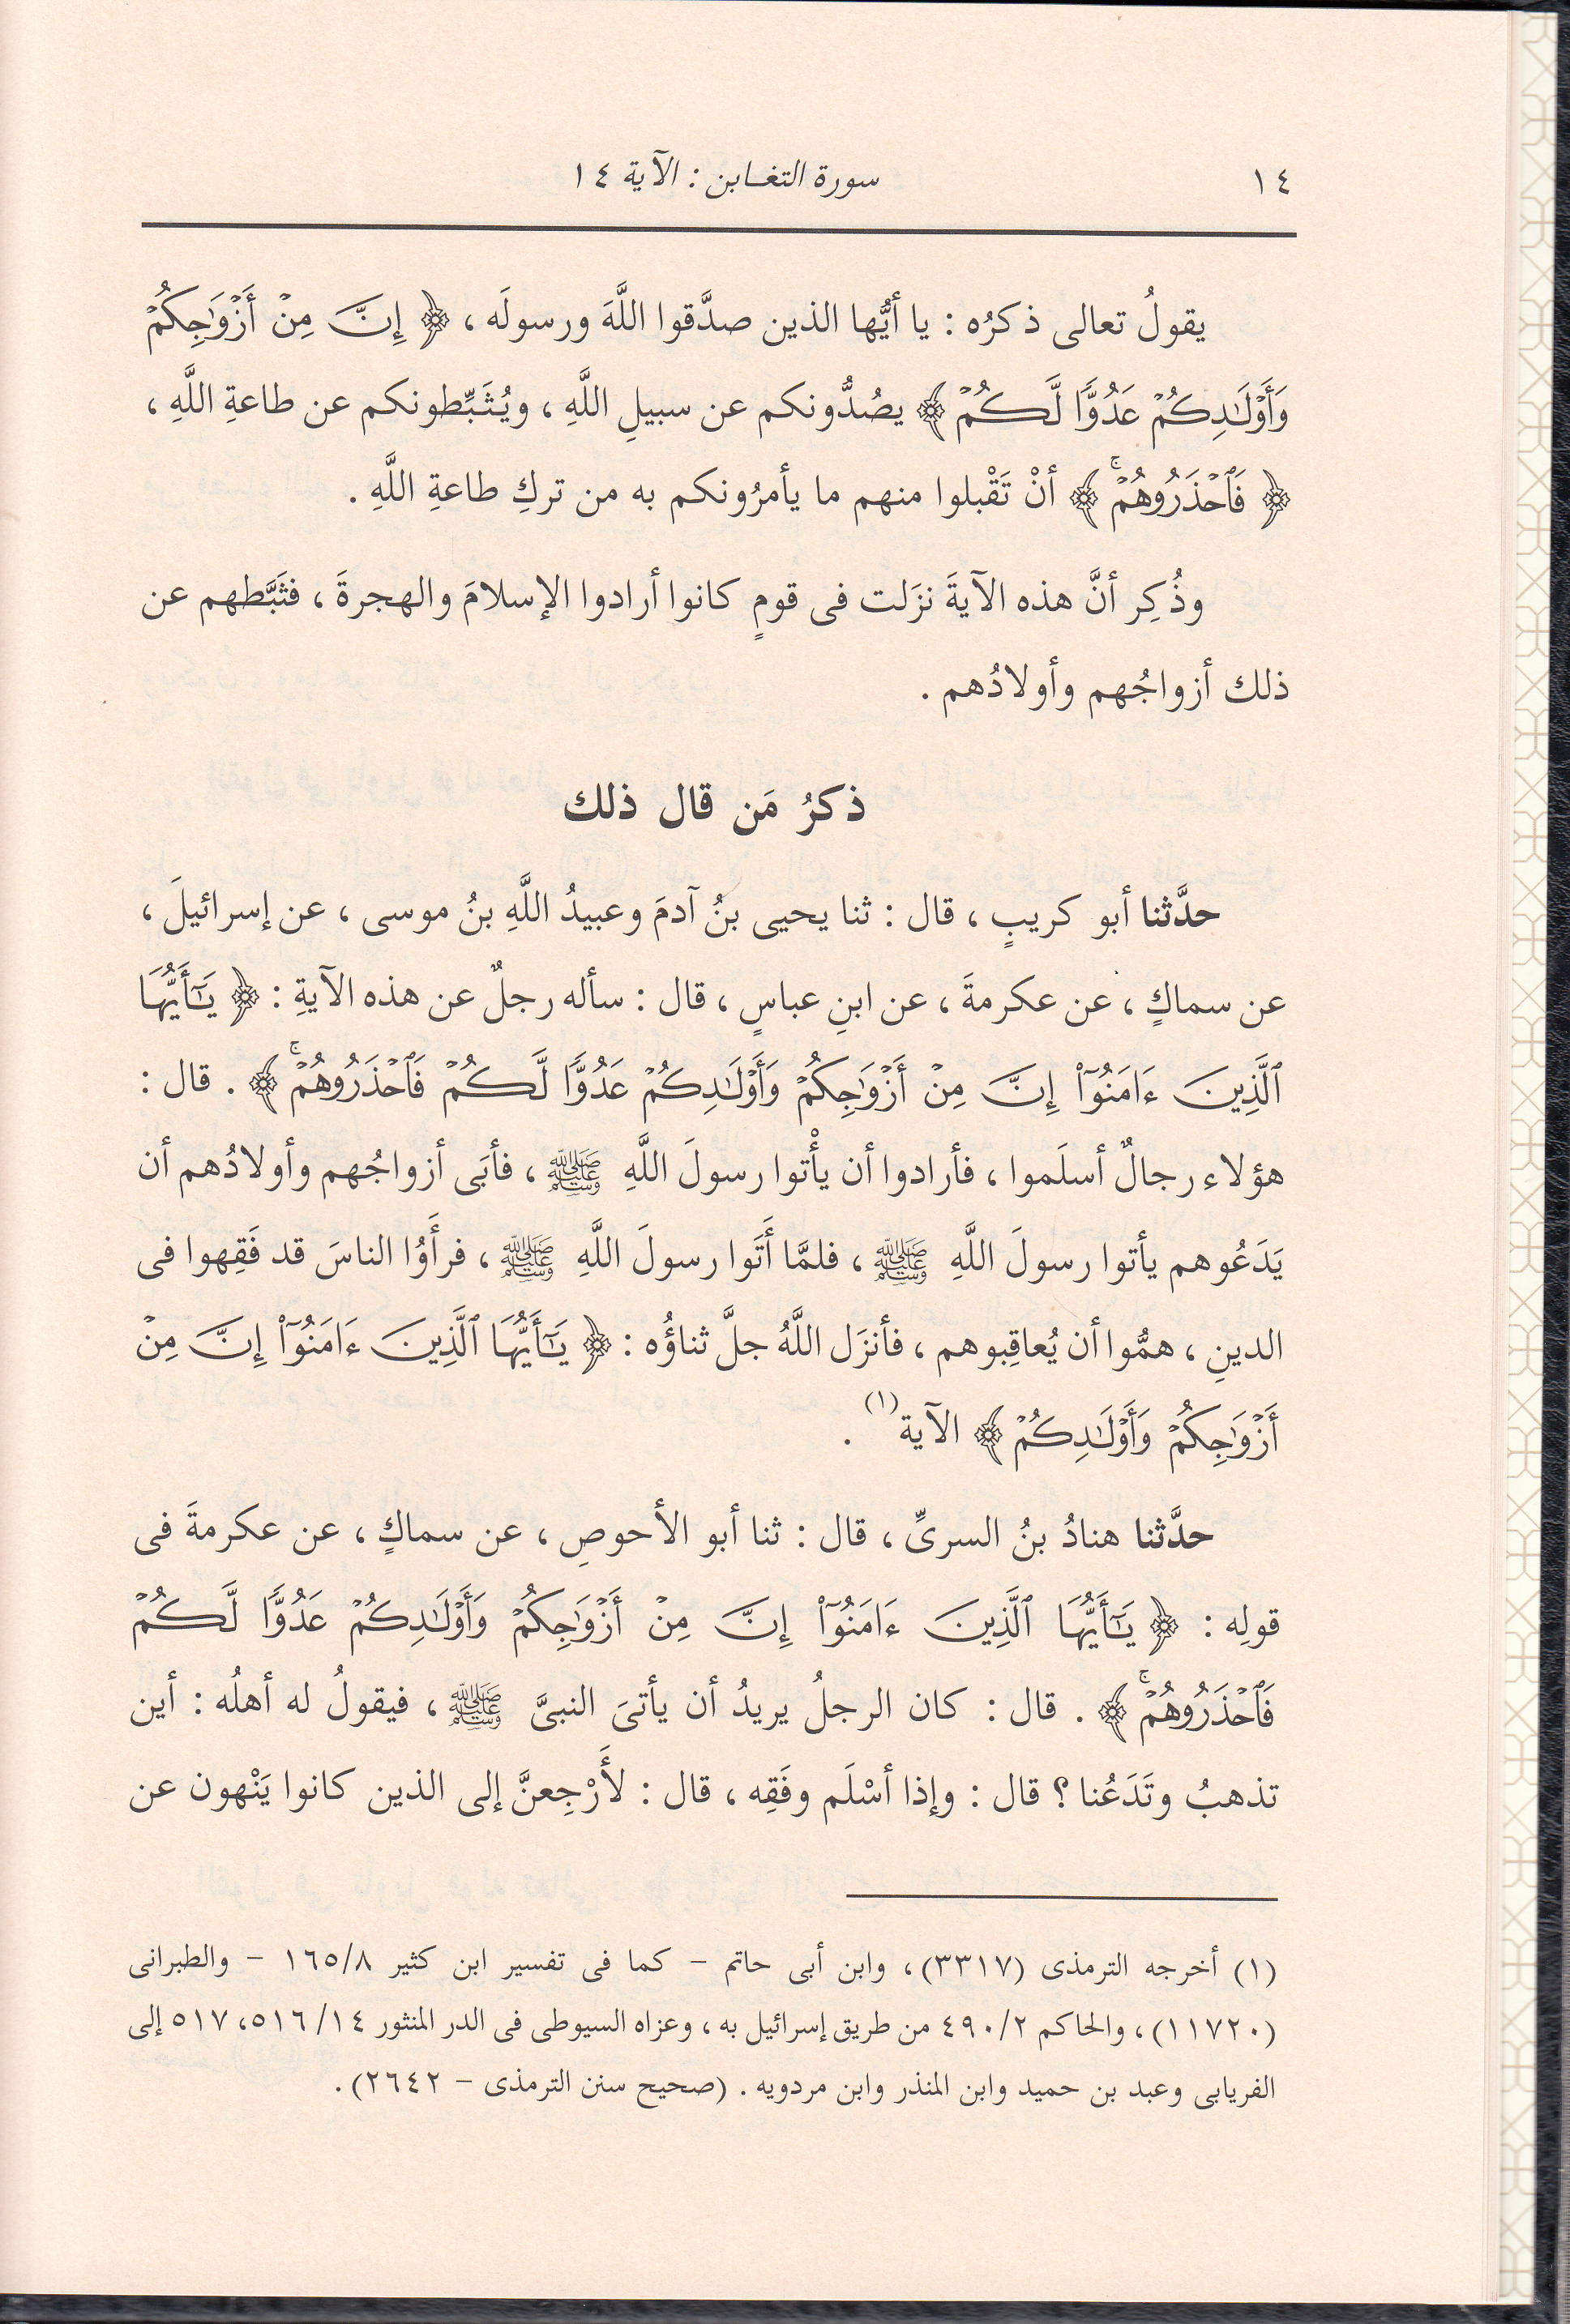 ١٤
سورة التغـابن : الآية ١٤
يقولُ تعالى ذكرُه : يا أيُّها الذين صدَّقوا اللَّهَ ورسولَه ، ﴿ إِنَّ مِنْ أَزْوَٰجِكُمْ
وَأَوْلَـٰدِكُمْ عَدُوًّا لَّكُمْ ﴾ يصُدُّونكم عن سبيلِ اللَّهِ ، ويُثَبِّطونكم عن طاعةِ اللَّهِ ،
﴿ فَٱحْذَرُوهُمْۚ ﴾ أنْ تَقْبلوا منهم ما يأمرُونكم به من تركِ طاعةِ اللَّهِ .
وذُكِر أنَّ هذه الآيةَ نزَلت فى قومٍ كانوا أرادوا الإسلامَ والهجرةَ ، فثَبَّطهم عن
ذلك أزواجُهم وأولادُهم .
ذكرُ مَن قال ذلك
حدَّثنا أبو كريبٍ ، قال : ثنا يحيى بنُ آدمَ وعبيدُ اللَّهِ بنُ موسى ، عن إسرائيلَ ،
عن سماكٍ ، عن عكرمةَ ، عن ابنِ عباسٍ ، قال : سأله رجلٌ عن هذه الآيةِ : ﴿ يَـٰٓأَيُّهَا
ٱلَّذِينَ ءَامَنُوٓا۟ إِنَّ مِنْ أَزْوَٰجِكُمْ وَأَوْلَـٰدِكُمْ عَدُوًّا لَّكُمْ فَٱحْذَرُوهُمْۚ ﴾ . قال :
هؤلاء رجالٌ أسلَموا ، فأرادوا أن يأْتوا رسولَ اللَّهِ ﷺ ، فأبَى أزواجُهم وأولادُهم أن
يَدَعُوهم يأتوا رسولَ اللَّهِ ﷺ ، فلمَّا أَتَوا رسولَ اللَّهِ ﷺ ، فرأَوُا الناسَ قد فَقِهوا فى
الدينِ ، همُّوا أن يُعاقِبوهم ، فأنزَل اللَّهُ جلَّ ثناؤُه : ﴿ يَـٰٓأَيُّهَا ٱلَّذِينَ ءَامَنُوٓا۟ إِنَّ مِنْ
أَزْوَٰجِكُمْ وَأَوْلَـٰدِكُمْ ﴾ الآية(١) .
حدَّثنا هنادُ بنُ السرىِّ ، قال : ثنا أبو الأحوصِ ، عن سماكٍ ، عن عكرمةَ فى
قولِه : ﴿ يَـٰٓأَيُّهَا ٱلَّذِينَ ءَامَنُوٓا۟ إِنَّ مِنْ أَزْوَٰجِكُمْ وَأَوْلَـٰدِكُمْ عَدُوًّا لَّكُمْ
فَٱحْذَرُوهُمْۚ ﴾ . قال : كان الرجلُ يريدُ أن يأتىَ النبىَّ ﷺ ، فيقولُ له أهلُه : أين
تذهبُ وتَدَعُنا ؟ قال : وإذا أسْلَم وفَقِه ، قال : لأَرْجِعنَّ إلى الذين كانوا يَنْهون عن
(١) أخرجه الترمذى (٣٣١٧)، وابن أبى حاتم – كما فى تفسير ابن كثير ١٦٥/٨ – والطبرانى
(١١٧٢٠)، والحاكم ٤٩٠/٢ من طريق إسرائيل به ، وعزاه السيوطى فى الدر المنثور ٥١٦/١٤، ٥١٧ إلى
الفريابى وعبد بن حميد وابن المنذر وابن مردويه . (صحيح سنن الترمذى – ٢٦٤٢).